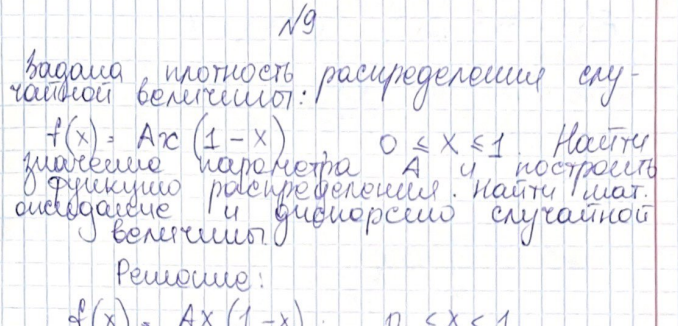 №9
Задана плотность распределения слу-
чайной величины:
f(x) = Ax (1 - x), 0 ≤ x ≤ 1. Найти
значение параметра A и построить
функцию распределения. Найти мат.
ожидание и дисперсию случайной
величины.
Решение:
f(x) = Ax (1 - x), 0 ≤ x ≤ 1